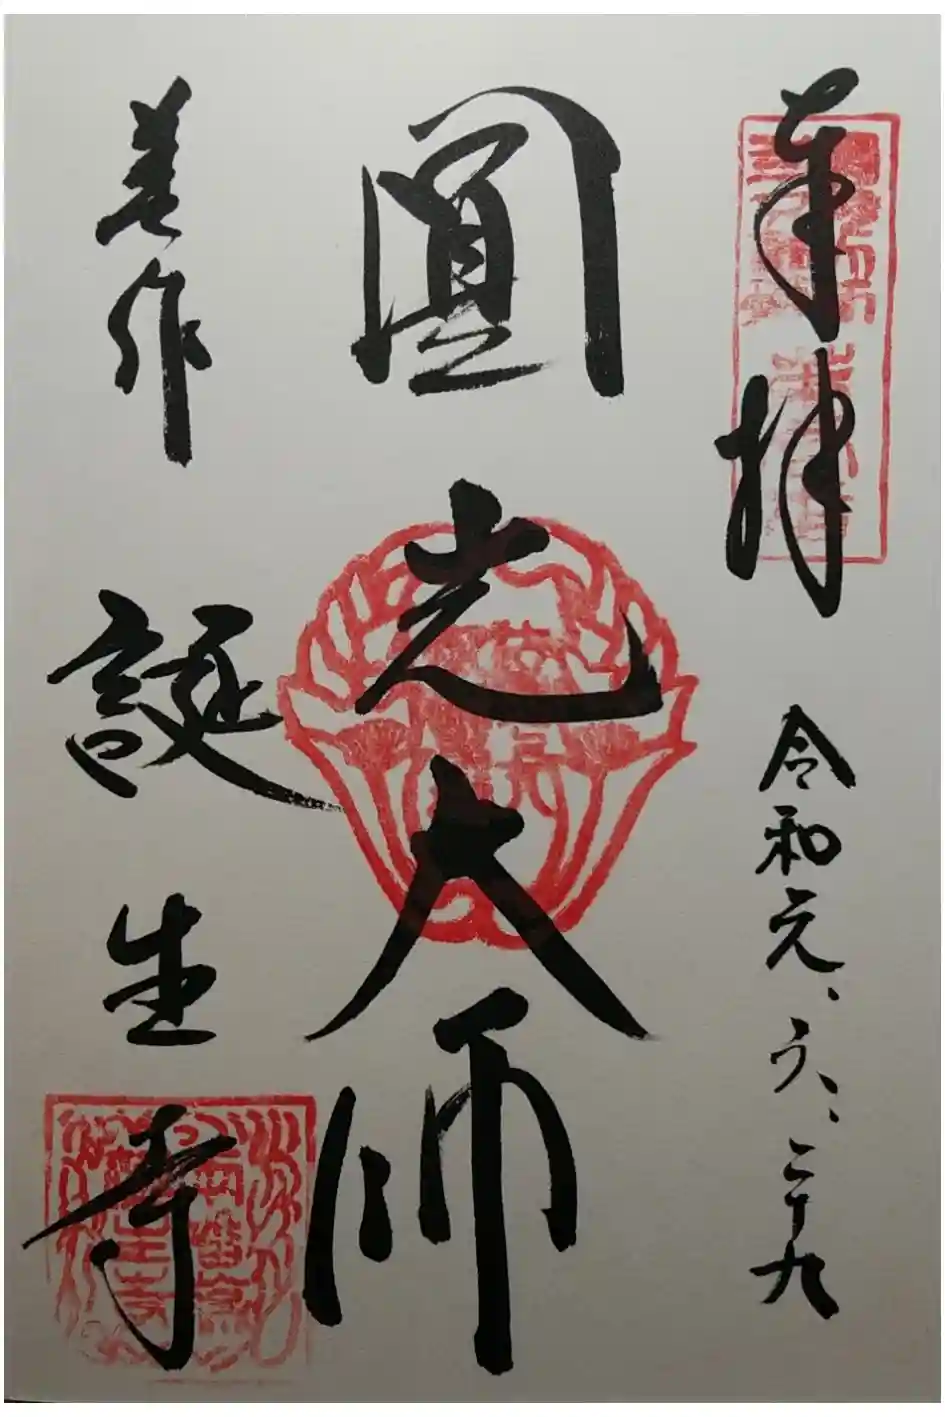 奉拝
令和元、六、二十九
圓光大師
美作
誕生寺